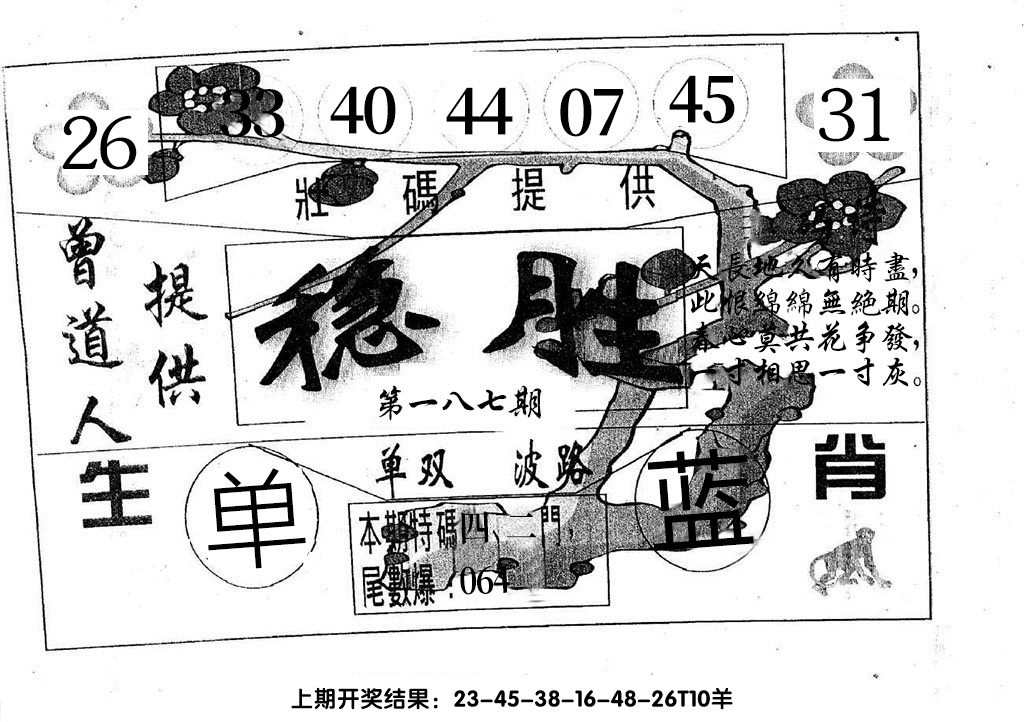 26 33 40 44 07 45 31
壯碼提供
曾道人
提供
穩胜
第一八七期
天長地久有時盡，
此恨綿綿無絕期。
春心莫共花争發，
一寸相思一寸灰。
单双 波路
生肖
单
蓝
本期特碼四、二門，
尾數爆：064
上期开奖结果：23-45-38-16-48-26T10羊